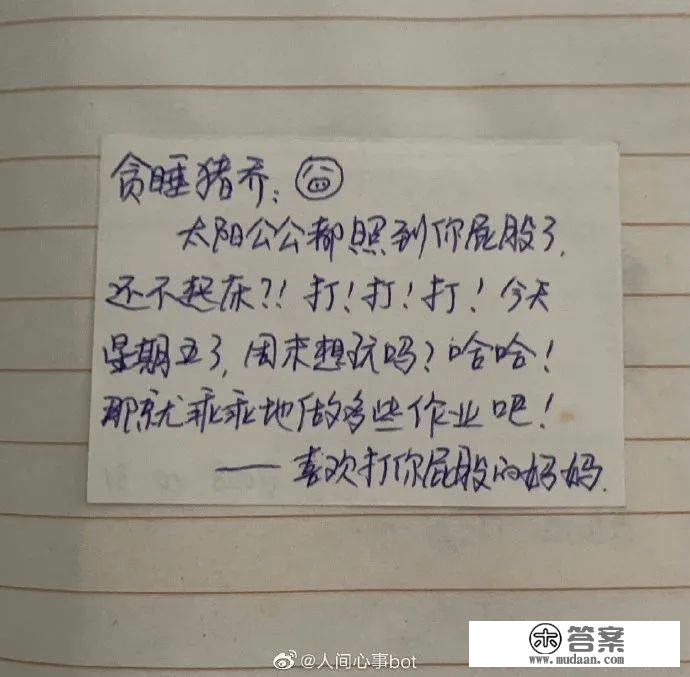 贪睡猪乔:
太阳公公都照到你屁股了,
还不起床?!打!打!打!今天
星期五了,周末想玩吗?哈哈!
那就乖乖地做多些作业吧!
——喜欢打你屁股的妈妈.
@人间心事bot
答案
www.mudaan.com